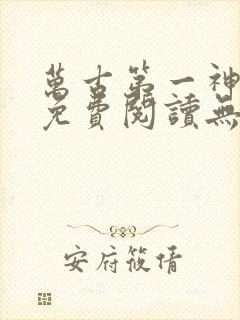 萬古第一神
免費閱讀無
安府筱倩